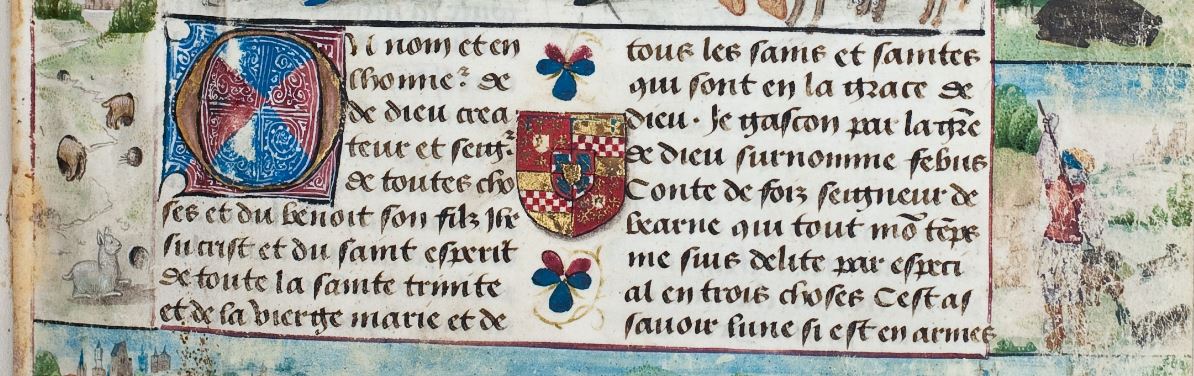 Ou nom et en
lhonne᷑ de
de dieu crea
teur et seig᷑
de toutes cho
ses et du benoit son filz Jhe
su crist et du saint esperit
de toute la sainte trinite
et de la vierge marie et de
tous les sains et saintes
qui sont en la grace de
dieu · Je gascon par la gr̃e
de dieu surnomme febus
Conte de foiz seigneur de
bearne qui tout mõ tẽps
me suis delite par especi
al en trois choses Cest as
sauoir lune si est en armes